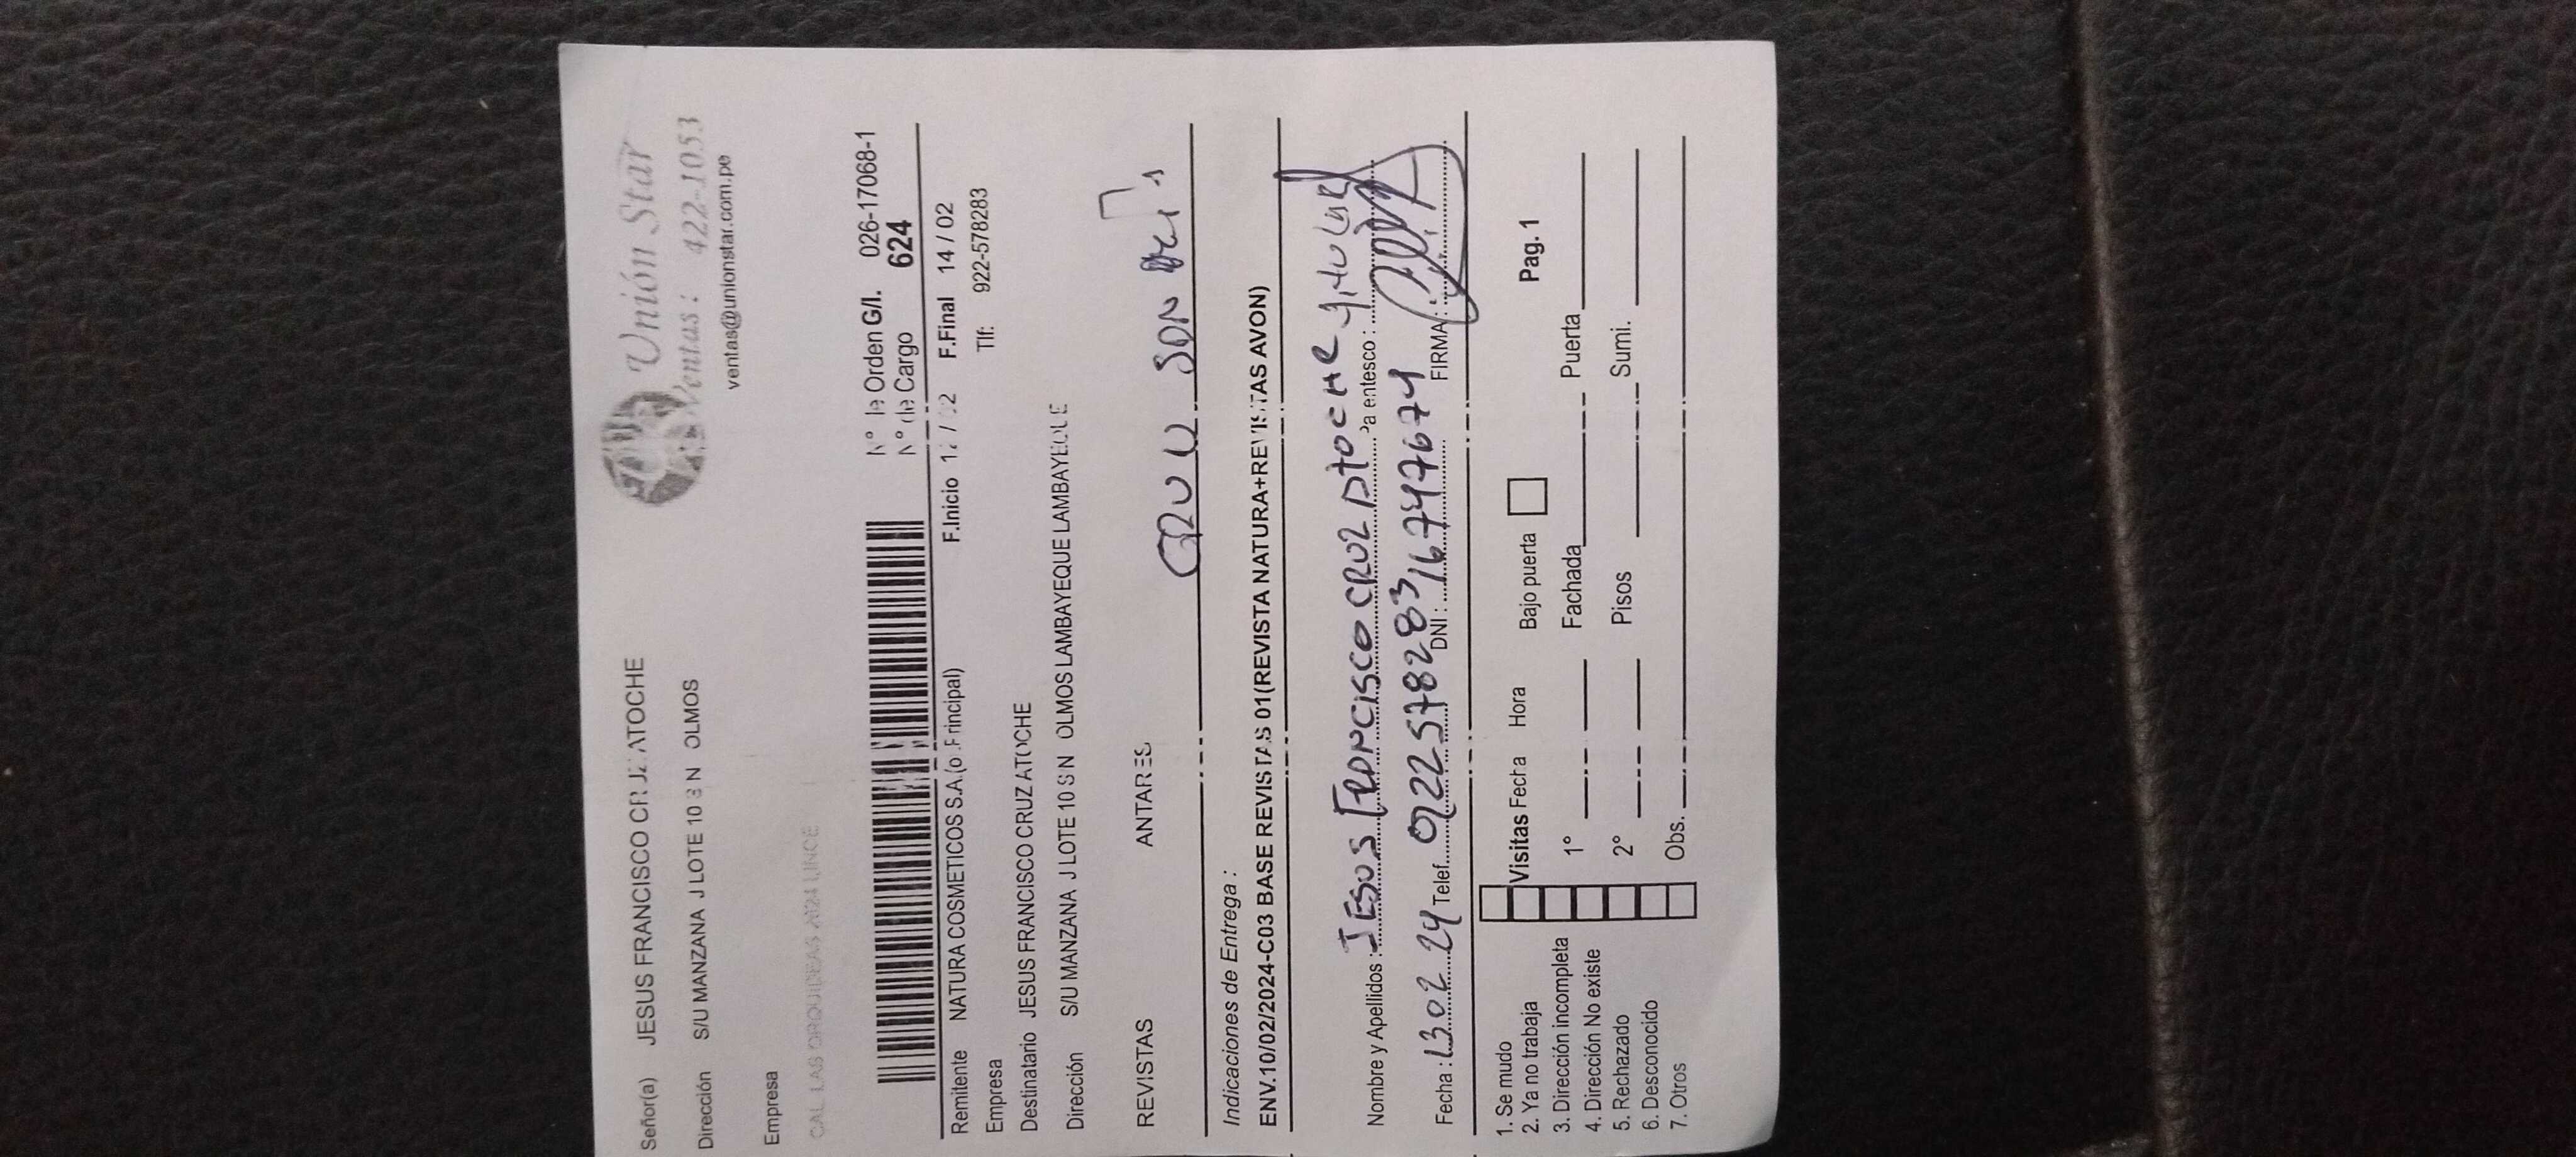 Unión Star
Ventas: 422-1053
ventas@unionstar.com.pe
Señor(a) JESUS FRANCISCO CRUZ ATOCHE
Dirección S/U MANZANA J LOTE 10 S N OLMOS
Empresa
CAL LAS ORQUIDEAS 2624 LINCE
N° de Orden G/I. 026-17068-1
N° de Cargo 624
Remitente NATURA COSMETICOS S.A.(of.Principal) F.Inicio 12 / 02 F.Final 14 / 02
Empresa Tlf: 922-578283
Destinatario JESUS FRANCISCO CRUZ ATOCHE
Dirección S/U MANZANA J LOTE 10 S N OLMOS LAMBAYEQUE LAMBAYEQUE
REVISTAS ANTARES
Indicaciones de Entrega :
ENV.10/02/2024-C03 BASE REVISTAS 01(REVISTA NATURA+REVISTAS AVON)
Nombre y Apellidos : JESUS FRANCISCO CRUZ ATOCHE Parentesco : titular
Fecha : 13 02 24 Telef. 922578283 DNI : 16747674 FIRMA :
1. Se mudo
2. Ya no trabaja
3. Dirección incompleta
4. Dirección No existe
5. Rechazado
6. Desconocido
7. Otros
Visitas Fecha Hora Bajo puerta Pag. 1
1° Fachada Puerta
2° Pisos Sumi.
Obs.